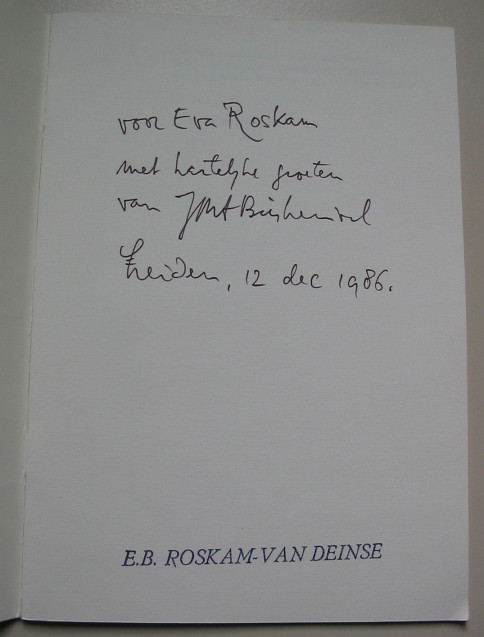 voor Eva Roskam
met hartelijke groeten
van JMA Biesheuvel
Leiden, 12 dec 1986.
E.B. ROSKAM-VAN DEINSE